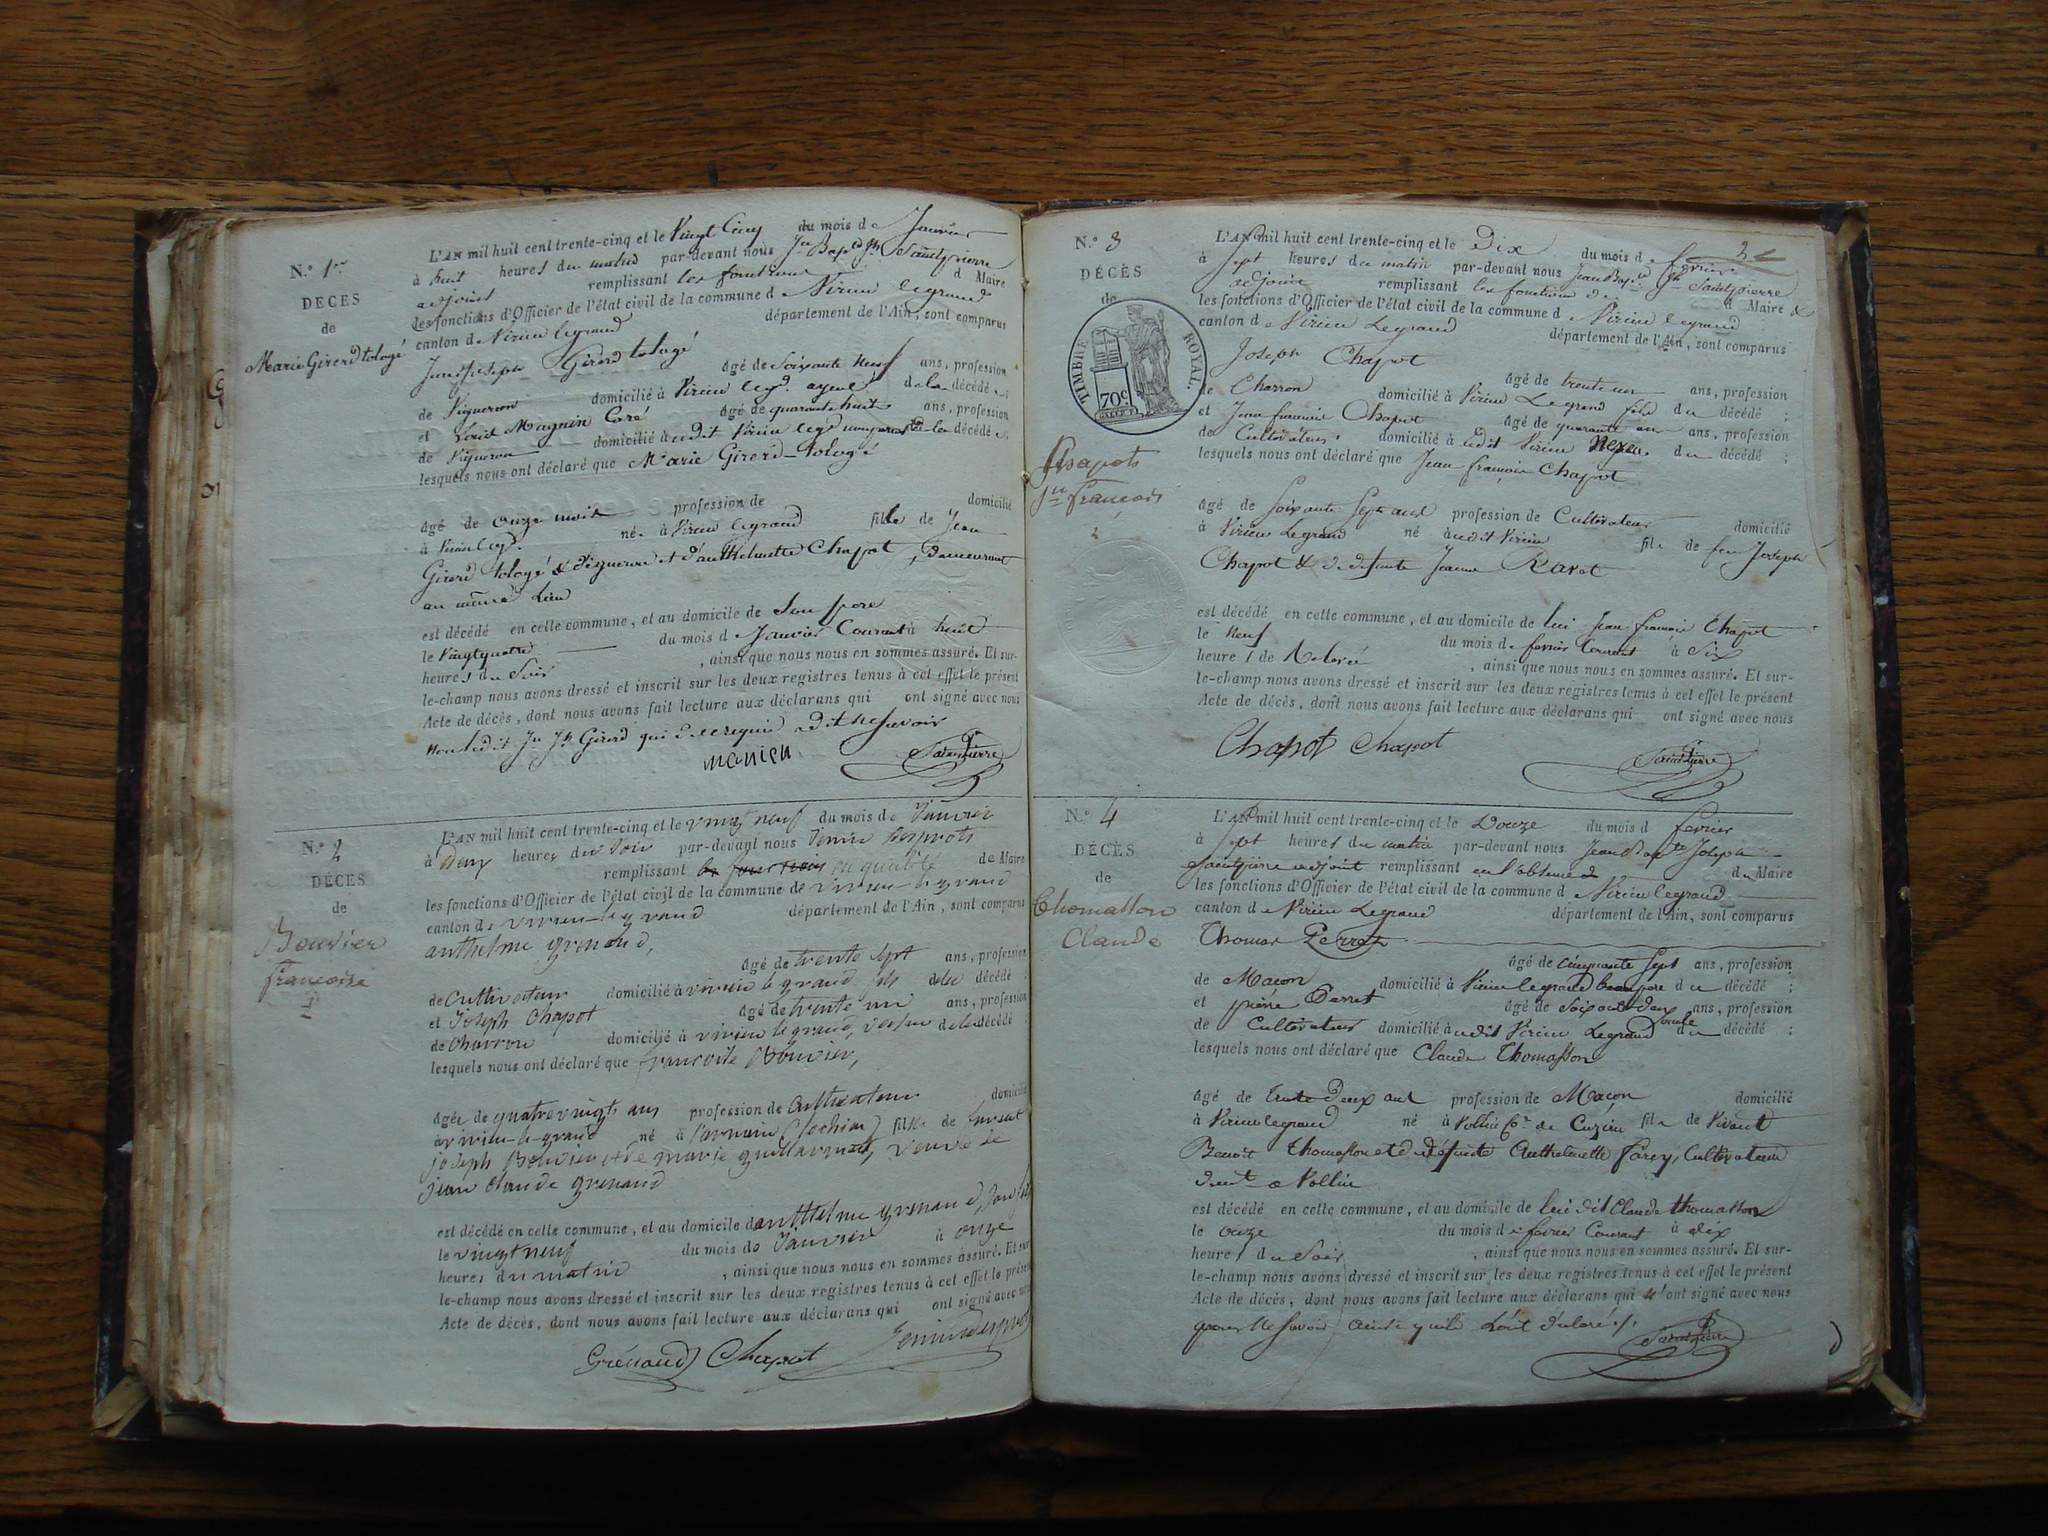 N.° 1er
DECES
de
Marie Girerd tologé
L'AN mil huit cent trente-cinq et le Vingt Cinq du mois de Janvier
à huit heures du matin par-devant nous Jn Bapte Jh Saintpierre
adjoint remplissant les fonctions d Maire
les fonctions d'Officier de l'état civil de la commune de Virieu legrand
canton de Virieu legrand département de l'Ain, sont comparus
Jean Joseph Girerd tologé
âgé de Soixante neuf ans, profession
de Vigneron domicilié à Virieu legd. ayeul de la décédé ;
et Louis Magnin Caré âgé de quarante huit ans, profession
de Vigneron domicilié à udit Virieu legd de la décédé
lesquels nous ont déclaré que Marie Girerd-tologé
âgé de onze mois profession de domicilié
à Virieu legd. née à Virieu legrand fille de Jean
Girerd tologé Vigneron et d'anthelmette Chapot, demeurant
au même lieu
est décédé en cette commune, et au domicile de Son pere
le Vingtquatre du mois de Janvier Courant à huit
heures du Soir , ainsi que nous nous en sommes assuré. Et sur-
le-champ nous avons dressé et inscrit sur les deux registres tenus à cet effet le présent
Acte de décès, dont nous avons fait lecture aux déclarans qui ont signé avec nous
non ledit Jn Jh Girerd qui de ce requis a dit ne savoir
manien Saintpierre
N.° 2
DÉCES
de
Bouvier
françoise
L'AN mil huit cent trente-cinq et le vingt neuf du mois de Janvier
à deux heures du soir par-devant nous
remplissant les fonctions en qualité de Maire
les fonctions d'Officier de l'état civil de la commune de virieu-le-grand
canton de virieu-le-grand département de l'Ain, sont comparus
anthelme grenaud,
âgé de trente sept ans, profession
de Cultivateur domicilié à virieu le grand fils de la décédé
et Joseph Chapot âgé de trente un ans, profession
de Charron domicilié à virieu le grand, voisin de la décédé
lesquels nous ont déclaré que françoise Bouvier,
âgée de quatrevingts ans profession de Cultivateur domicilié
à virieu-le-grand né à fille de
joseph Bouvier et de marie guillermet, veuve de
jean Claude grenaud
est décédé en cette commune, et au domicile de anthelme grenaud, son fils
le vingt neuf du mois de Janvier à onze
heures du matin , ainsi que nous nous en sommes assuré. Et sur-
le-champ nous avons dressé et inscrit sur les deux registres tenus à cet effet le présent
Acte de décès, dont nous avons fait lecture aux déclarans qui ont signé avec nous
Grénaud Chapot
N.° 3
DÉCÈS
de
TIMBRE ROYAL.
70c.
Chapot
Jn françois
L'AN mil huit cent trente-cinq et le Dix du mois de fevrier
à Sept heures du matin par-devant nous Jean Bapte Jh Saintpierre
adjoint remplissant les fonctions de d Maire
les fonctions d'Officier de l'état civil de la commune de Virieu legrand
canton de Virieu Legrand département de l'Ain, sont comparus
Joseph Chapot
âgé de trente un ans, profession
de Charron domicilié à Virieu Legrand fils du décédé ;
et Jean françois Chapot âgé de quarante ans, profession
de Cultivateur domicilié à udit Virieu Neveu du décédé ;
lesquels nous ont déclaré que Jean françois Chapot
âgé de Soixante Sept ans profession de Cultivateur domicilié
à Virieu Legrand né audit Virieu fils de feu Joseph
Chapot & de defunte Jeanne Ravet
est décédé en cette commune, et au domicile de lui Jean françois Chapot
le neuf du mois de fevrier Courant à Six
heures de , ainsi que nous nous en sommes assuré. Et sur-
le-champ nous avons dressé et inscrit sur les deux registres tenus à cet effet le présent
Acte de décès, dont nous avons fait lecture aux déclarans qui ont signé avec nous
Chapot Chapot Saintpierre
N.° 4
DÉCÈS
de
Thomasson
Claude
L'AN mil huit cent trente-cinq et le Douze du mois d fevrier
à Sept heures du matin par-devant nous Jean Bapte Joseph
Saintpierre adjoint remplissant en l'absence du Maire
les fonctions d'Officier de l'état civil de la commune de Virieu legrand
canton de Virieu Legrand département de l'Ain, sont comparus
Thomas Perret
âgé de cinquante Sept ans, profession
de Macon domicilié à Virieu legrand beau pere du décédé ;
et pierre Perret âgé de Soixante deux ans, profession
de Cultivateur domicilié à udit Virieu Legrand oncle du décédé ;
lesquels nous ont déclaré que Claude Thomasson
âgé de trente Deux ans profession de Maçon domicilié
à Virieu legrand né à Pollieu Cne de Cuzieu fils de Vivant
Benoit Thomasson et de défunte Anthelmette Parey, Cultivateur
demt a Pollieu
est décédé en cette commune, et au domicile de lui dit Claude thomasson
le onze du mois de fevrier Courant à dix
heures du Soir , ainsi que nous nous en sommes assuré. Et sur-
le-champ nous avons dressé et inscrit sur les deux registres tenus à cet effet le présent
Acte de décès, dont nous avons fait lecture aux déclarans qui n'ont signé avec nous
pour ne savoir ainsi qu'ils l'ont déclaré
Saintpierre